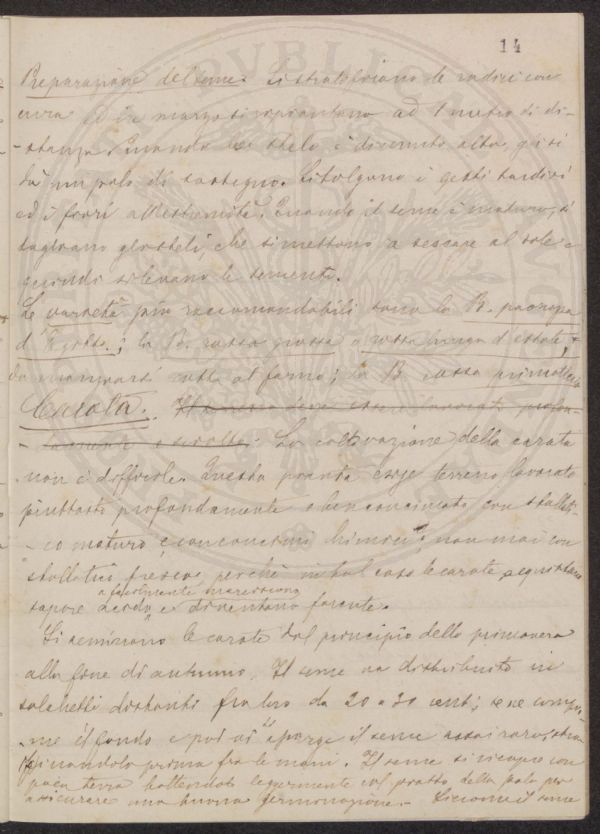 14
Preparazione del seme. Si stratificano le radici con
cura ed in marzo si ripiantano ad 1 metro di di-
stanza. Quando lo stelo è divenuto alto, gli si
dà un palo di sostegno. Si tolgono i getti tardivi
ed i fiori all'estremità. Quando il seme è maturo, si
tagliano gli steli, che si mettono a seccare al sole e
quindi si levano le sementi.
Le varietà più raccomandabili sono la B. paonazza
d'Egitto; la B. rossa grossa o rossa lunga d'estate,
da mangiarsi cotta al forno; la B. rossa
Carota. Il terreno deve essere lavorato profon-
damente e La coltivazione della carota
non è difficile. Questa pianta esige terreno lavorato
piuttosto profondamente e ben concimato con stallati-
co maturo e con concimi chimici, non mai con
stallatico fresco, perchè in tal caso le carote acquistano
e facilmente marciscono
sapore acido e diventano forcute.
Si seminano le carote dal principio della primavera
alla fine di autunno. Il seme va distribuito in
solchetti distanti fra loro da 20 a 30 cent; se ne compri-
me il fondo e poi vi si sparge il seme assai raro, stro-
finandolo prima fra le mani. Il seme si ricopre con
poca terra battendola leggermente col piatto della pala per
assicurare una buona germinazione. Siccome il seme